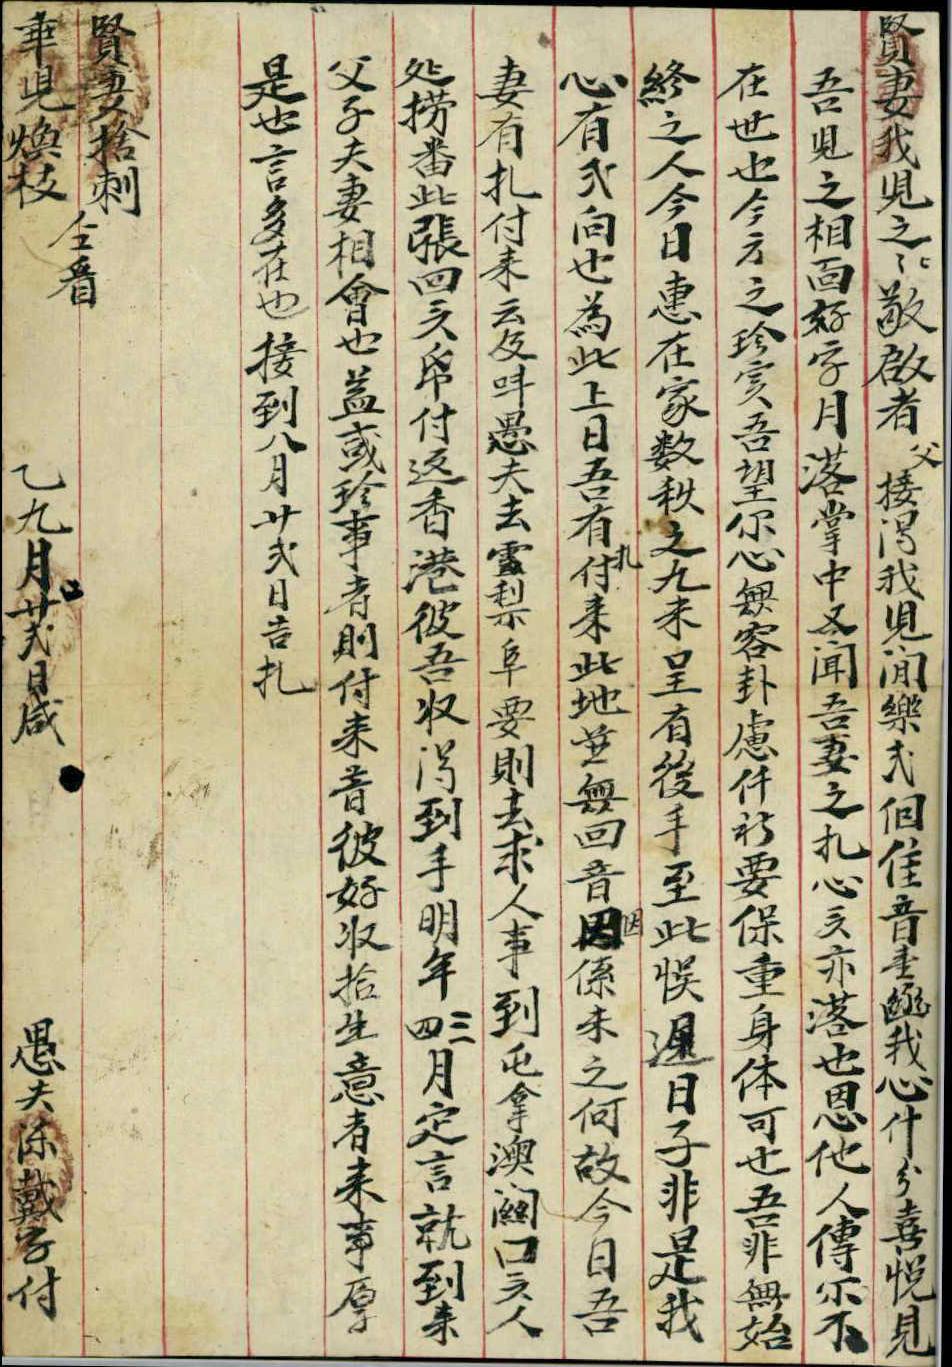 賢妻我兒之に敬啟者父接得我兒閒樂弍個佳音重我心什分喜悅見
吾兒之相面好字月落掌中又聞吾妻之扎心亦落也恩他人傳尔不
在世也今方之珍实吾望你心無容卦慮仟祈要保重身体可也吾非無始
終之人今日惠在家数秩之九未呈有後手至此悮過日子非是我
心有弍向也為此上日吾有扎付来此地並無回音因係未之何故今日吾
妻有扎付来云及吽愚夫去雪梨阜要則去求人事到屯拿澳関口人
处捞番此張回帋付返香港彼吾收得到手明年三四月定言就到来
父子夫妻相會也益或珍事者則付来音彼好收拾生意者来事厚
是也言多在也 接到八月廿弍日吉扎
賢妻拾刺
仝看
華兒煥枝
乙九月廿弍日咸
愚夫 戴字付